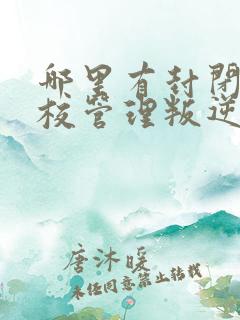 哪里有封闭
校管理叛逆
唐沐暖
未经同意禁止转载